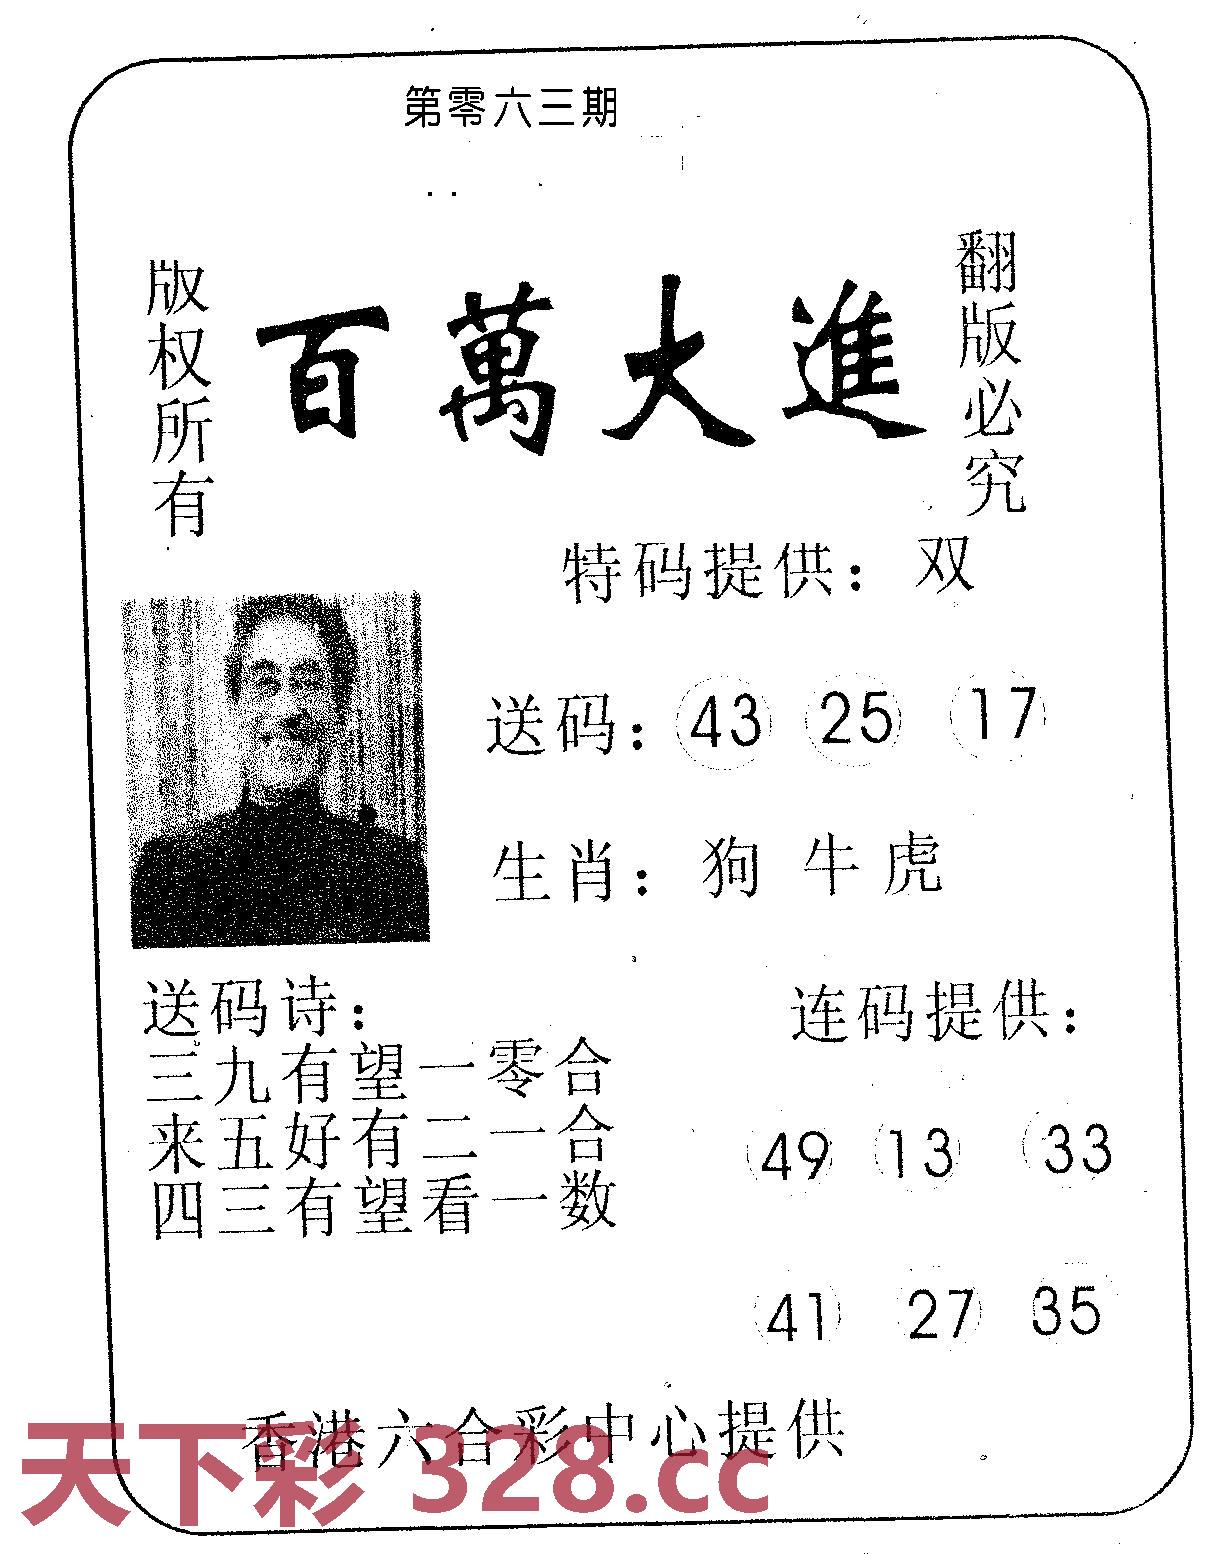 第零六三期
版权所有
百萬大進
翻版必究
特码提供：双
送码：43 25 17
生肖：狗 牛 虎
送码诗：
三九有望一零合
来五好有二一合
四三有望看一数
连码提供：
49 13 33
41 27 35
香港六合彩中心提供
天下彩 328.cc